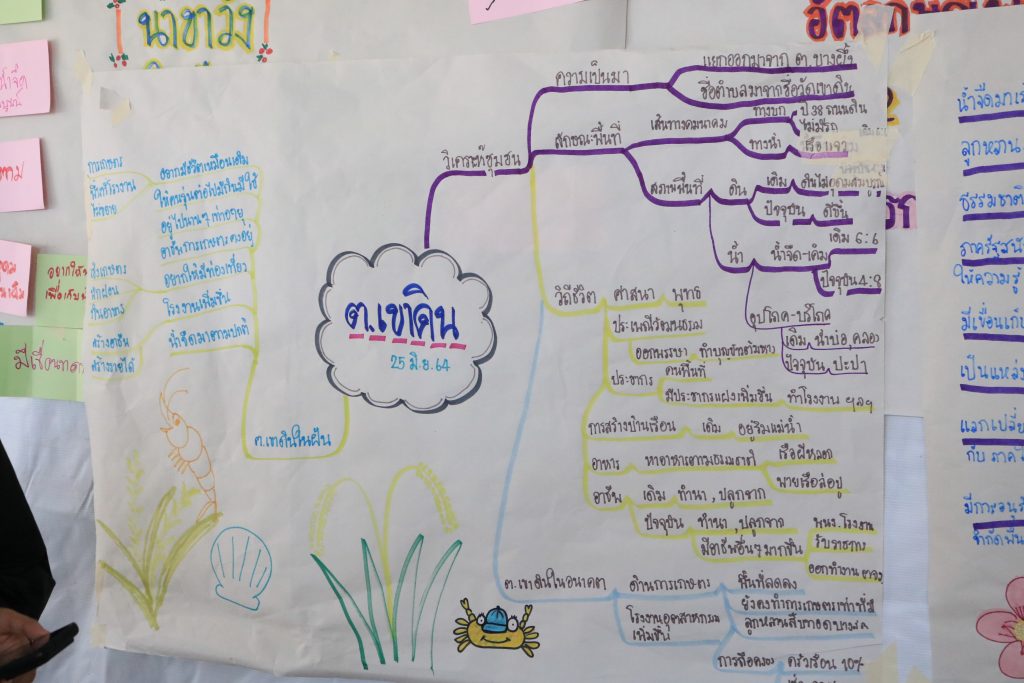 นาขาวัง
ต.เขาดิน
25 มิ.ย. 64
วิเคราะห์ชุมชน
ความเป็นมา
แยกออกมาจาก ต.บางผึ้ง
ชื่อตำบลมาจากชื่อวัดเขาดิน
ลักษณะพื้นที่
เส้นทางคมนาคม
ทางบก
ปี 38 ถนนดิน
ไม่มีรถ
ทางน้ำ
เรือแจว
สภาพพื้นที่
ดิน
เดิม
ปัจจุบัน
น้ำ
น้ำจืด-เค็ม
เดิม 6:6
ปัจจุบัน 4:8
อุปโภค-บริโภค
เดิม น้ำบ่อ, คลอง
ปัจจุบัน ปะปา
วิถีชีวิต
ศาสนา พุทธ
ประเพณีวัฒนธรรม
ออกพรรษา
ประชากร
คนพื้นที่
มีประชากรแฝงเพิ่มขึ้น ทำโรงงาน ฯลฯ
การสร้างบ้านเรือน เดิม อยู่ริมแม่น้ำ
อาหาร หาอาหารตามธรรมชาติ
เรือผีหลอก
พายเรือล่อปู
อาชีพ เดิม ทำนา, ปลูกจาก
ปัจจุบัน ทำนา, ปลูกจาก
มีอาชีพอื่นๆมากขึ้น
พนง.โรงงาน
รับราชการ
ต.เขาดินในอนาคต
ด้านการเกษตร
พื้นที่ลดลง
ยังคงทำการเกษตรเท่าที่มี
โรงงานอุตสาหกรรม
เพิ่มขึ้น
การถือครอง
ครัวเรือน 10%
ต.เขาดินในฝัน
อยากมีชีวิตเหมือนเดิม
ให้คนรุ่นต่อไปมีกินมีใช้
อยู่ไปนานๆเท่าอายุ
อาชีพการเกษตรคงอยู่
อยากให้มีท่องเที่ยว
โรงงานเพิ่มขึ้น
น้ำจืดมาตามปกติ
การเกษตร
ส่งเกษตร
สร้างอาชีพ
สร้างรายได้
น้ำจืดมา
ลูกหลาน
ธรรมชาติ
ภาครัฐสนั
ให้ความรู้
มีเขื่อนเก็
เป็นแหล่ง
แลกเปลี่
กับ ภาค